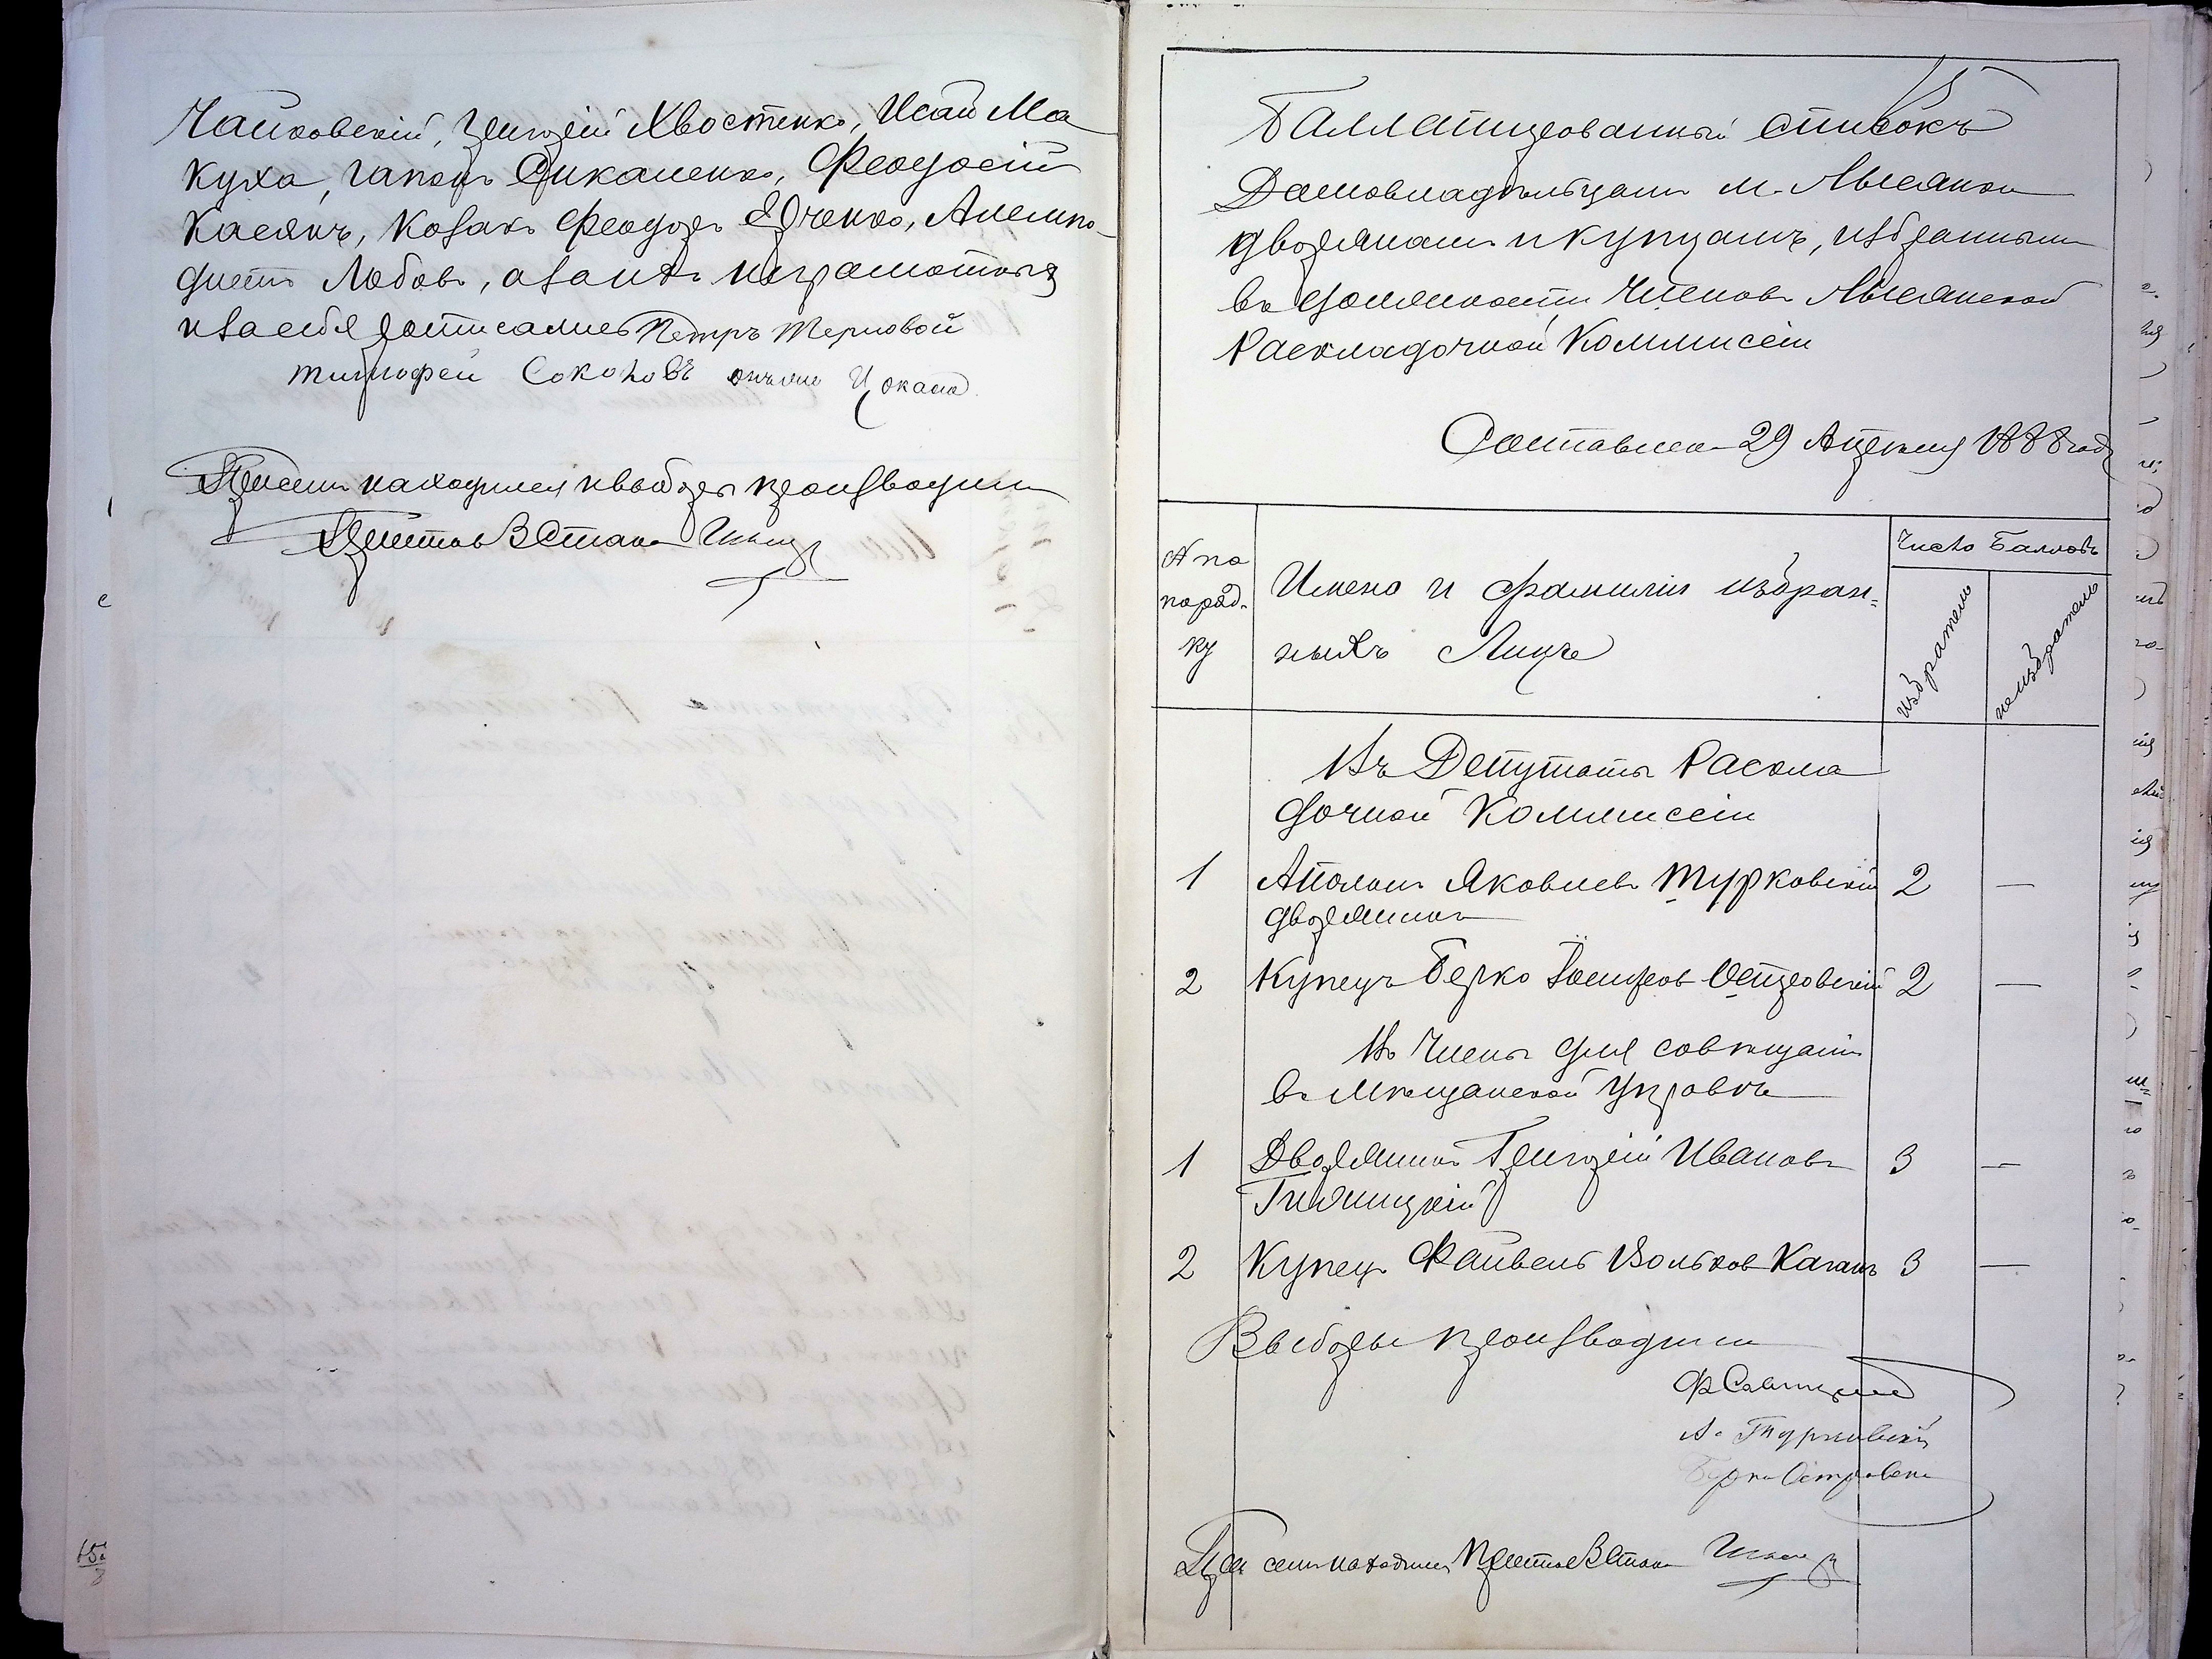 Чайковскій, Григорій Хвостенко, Исай Ма
куха, Гапонъ Дикаленко, Феодосій
Касянъ, Козакъ Феодоръ Юрченко,
Любовъ, а за нихъ неграмотныхъ
и за себя росписались Петръ Терновой
Тимофей Соколовъ Цокало
При семъ находился и выборы производилъ
Приставъ В Стана
Баллатированный списокъ
Домовладѣльцамъ м. Лысянки
дворянамъ и купцамъ, избраннымъ
въ должности Членовъ Лысянской
Раскладочной Коммисіи
Составленъ 29 Апрѣля 1888 года
№ по
поряд-
ку
Имена и фамиліи избран=
ныхъ Лицъ
Число Балловъ
избрательно
неизбрательно
Въ Депутаты Раскла
дочной Коммисіи
1 Аполонъ Яковлевъ Турковскій 2 —
дворянинъ
2 Купецъ Берко Островскій 2 —
Въ Члены для совѣщанія
въ Мѣщанской Управѣ
1 Дворянинъ Григорій Ивановъ 3 —
2 Купецъ Файвель Вольков Каганъ 3 —
Выборы производили
Ф Савицкій
А. Турковскій
Берко Островскій
При семъ находился Приставъ В Стана